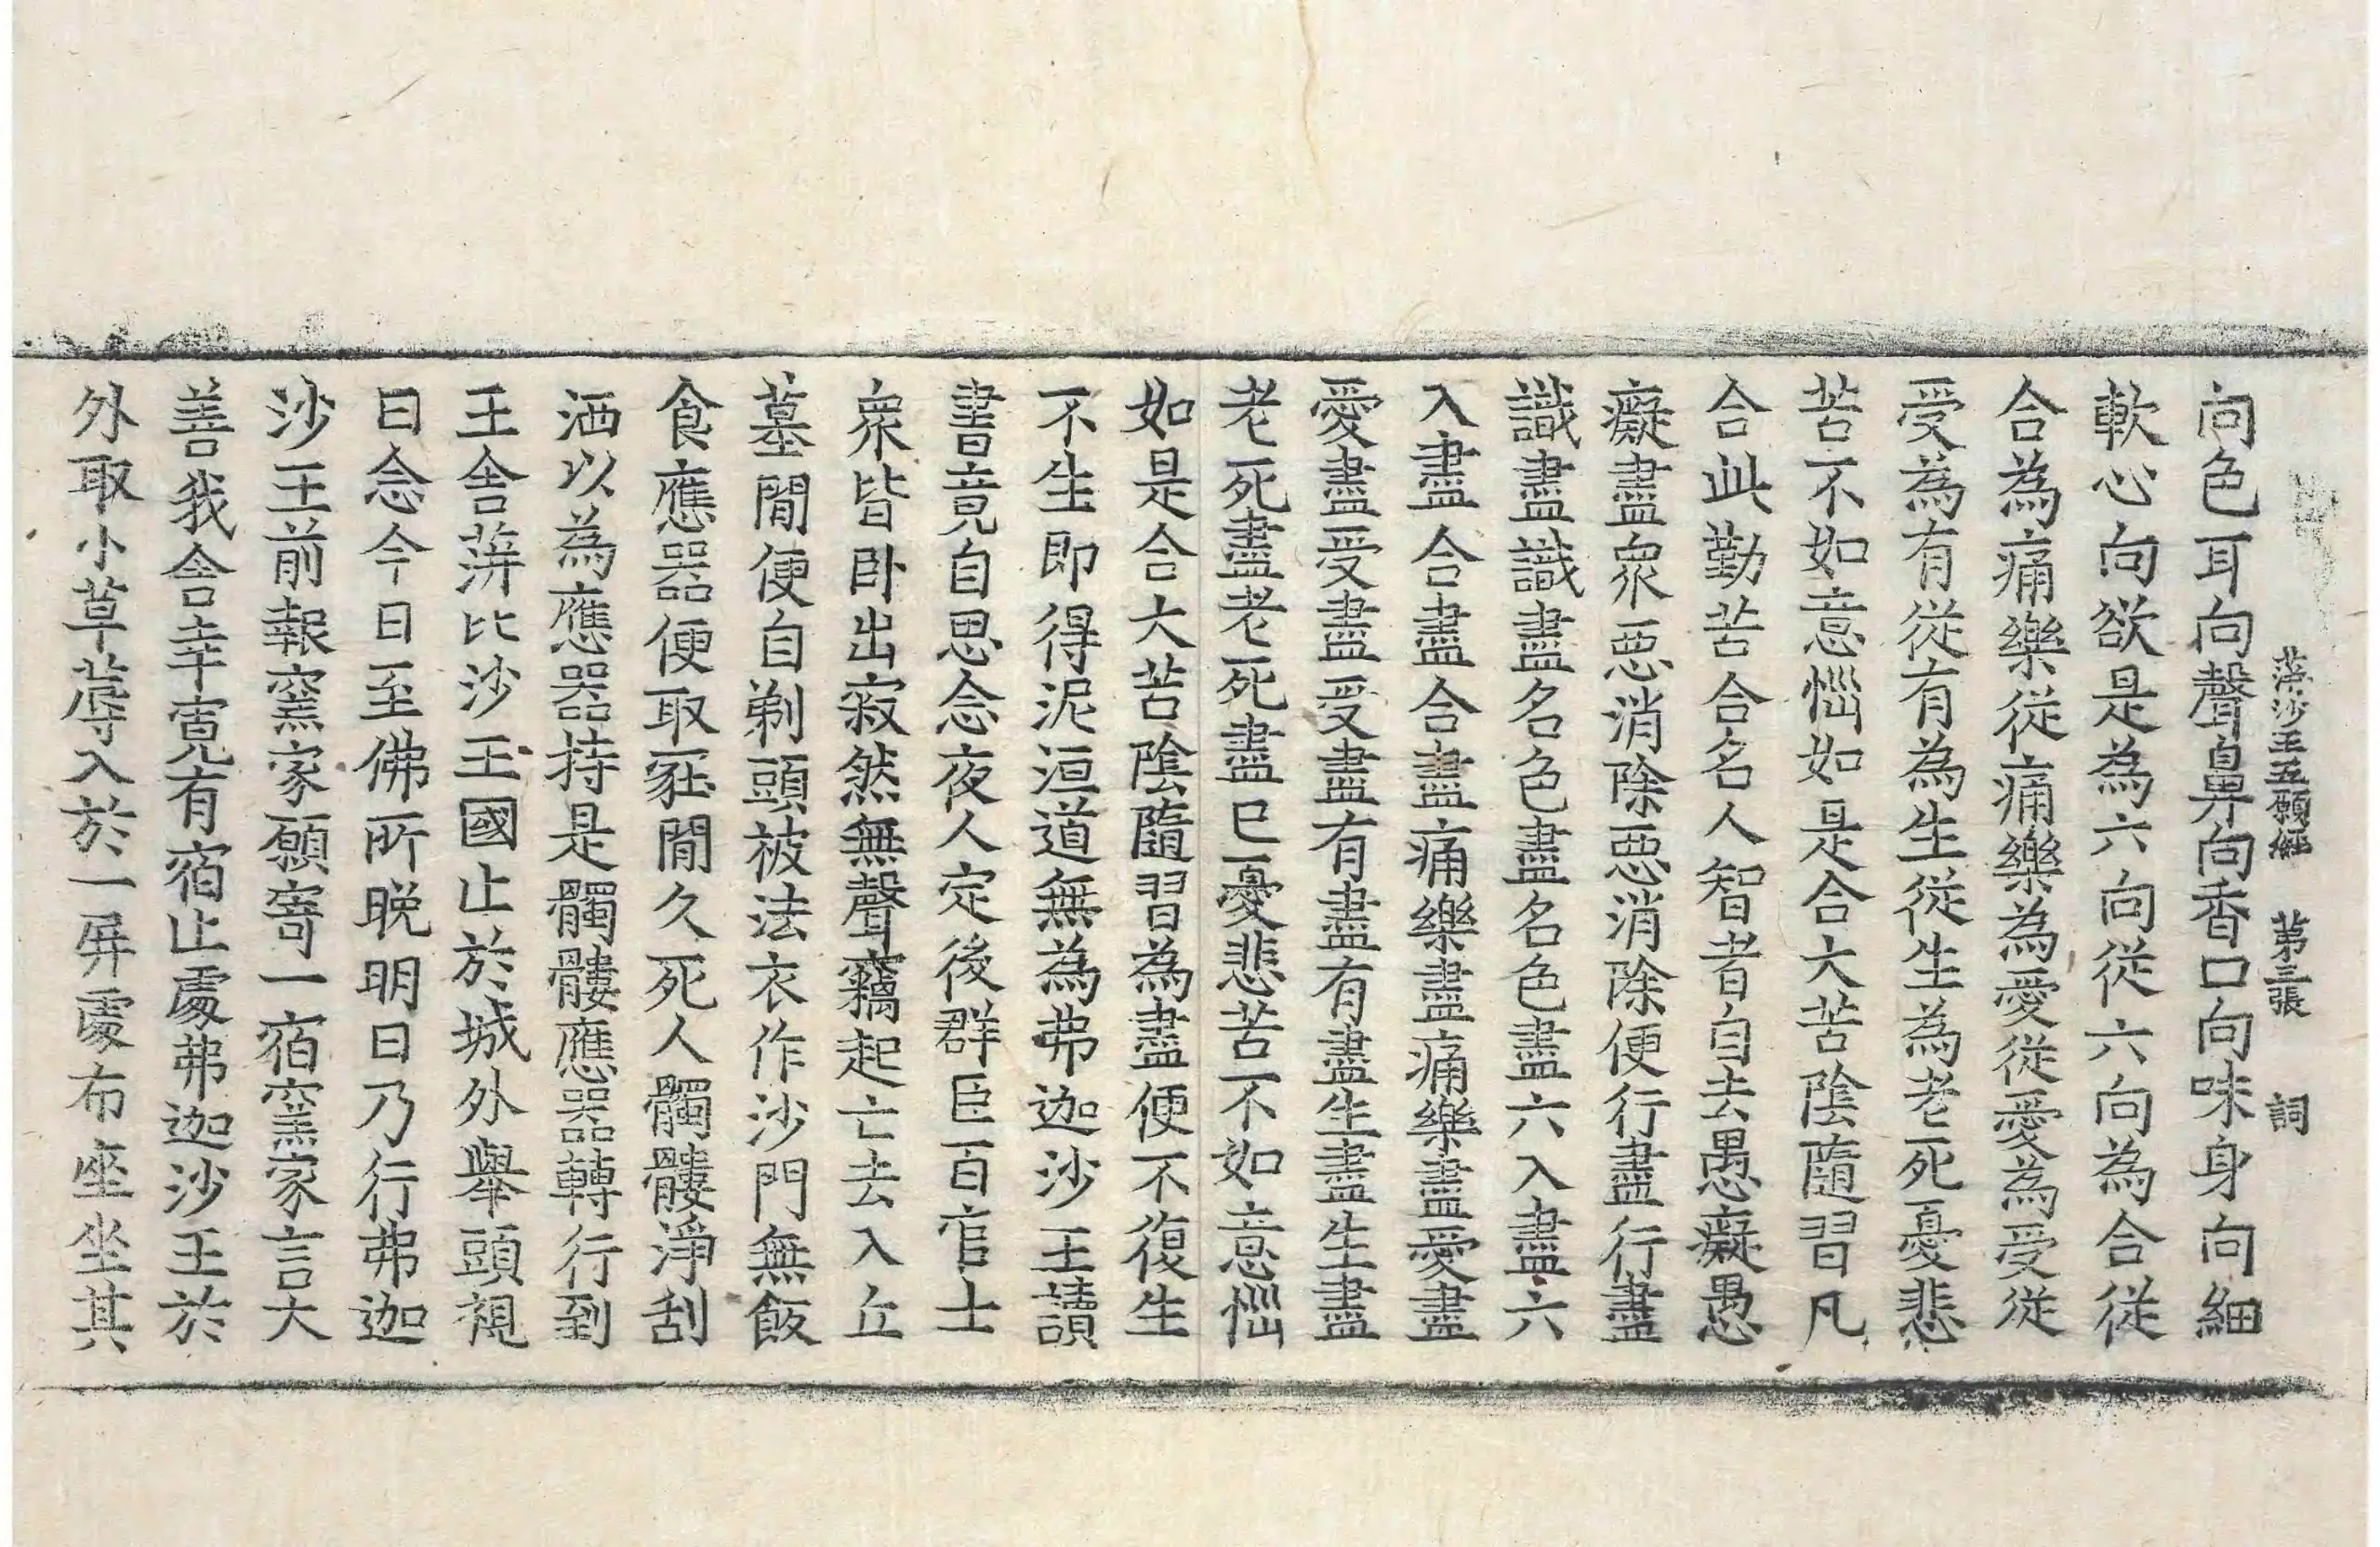 蓱沙王五願經 第三張 詞
向色耳向聲鼻向香口向味身向細
軟心向欲是為六向從六向為合從
合為痛樂從痛樂為愛從愛為受從
受為有從有為生從生為老死憂悲
苦不如意惱如是合大苦陰隨習凡
合此勤苦合名人智者自去愚癡愚
癡盡衆惡消除惡消除便行盡行盡
識盡識盡名色盡名色盡六入盡六
入盡合盡合盡痛樂盡痛樂盡愛盡
愛盡受盡受盡有盡有盡生盡生盡
老死盡老死盡已憂悲苦不如意惱
如是合大苦陰隨習為盡便不復生
不生即得泥洹道無為弗迦沙王讀
書竟自思念夜人定後群臣百官士
衆皆卧出寂然無聲竊起亡去入丘
墓閒便自剃頭被法衣作沙門無飯
食應器便取冢閒久死人髑髏淨刮
洒以為應器持是髑髏應器轉行到
王舍蓱比沙王國止於城外舉頭視
日念今日至佛所晚明日乃行弗迦
沙王前報窯家願寄一宿窯家言大
善我舍幸寬有宿止處弗迦沙王於
外取小草蓐入於一屏處布座坐其